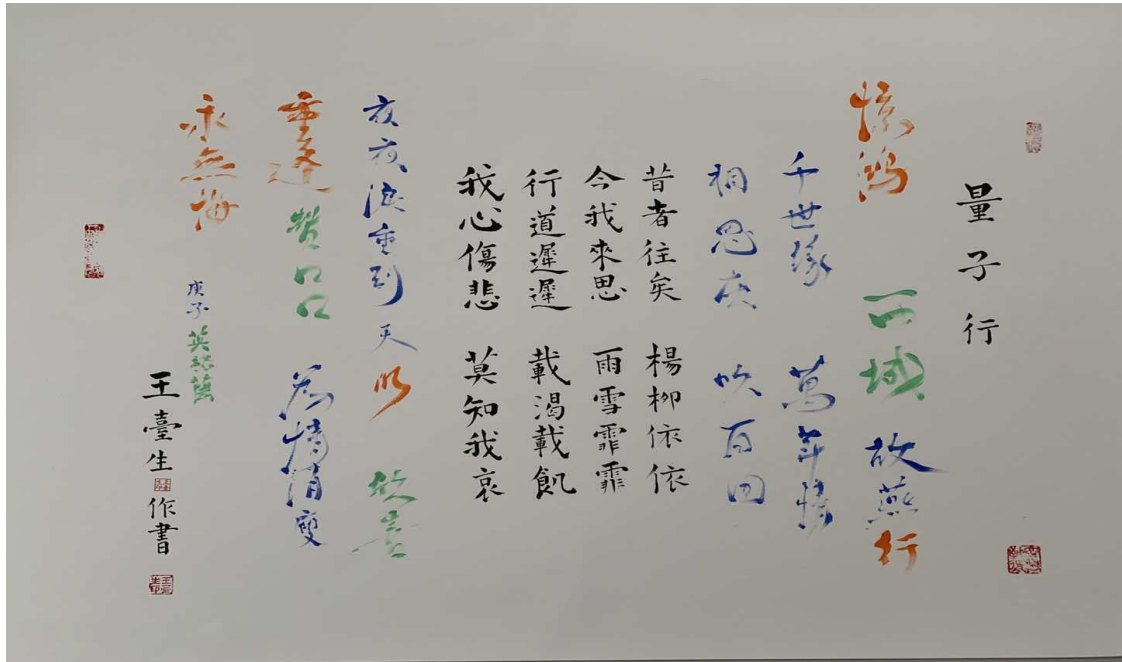 量子行
驚鴻 西域 故燕行
千世缘 萬年情
相思度 吹百回
昔者往矣 楊柳依依
今我來思 雨雪霏霏
行道遲遲 載渴載飢
我心傷悲 莫知我哀
夜夜淚重到天明
重逢 口口 為情消雙
永無悔
庚子 英
王臺生作書